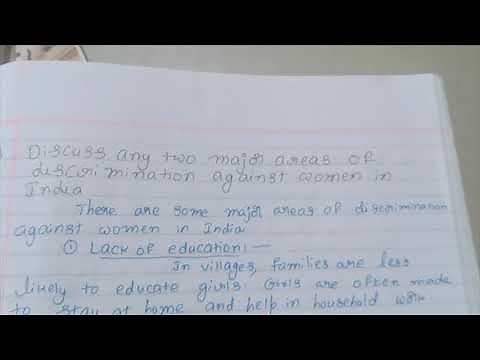 Discuss any two major areas of
discrimination against women in
India
There are some major areas of discrimination
against women in India
① Lack of education:—
In villages, families are less
likely to educate girls. Girls are often made
to stay at home and help in household work